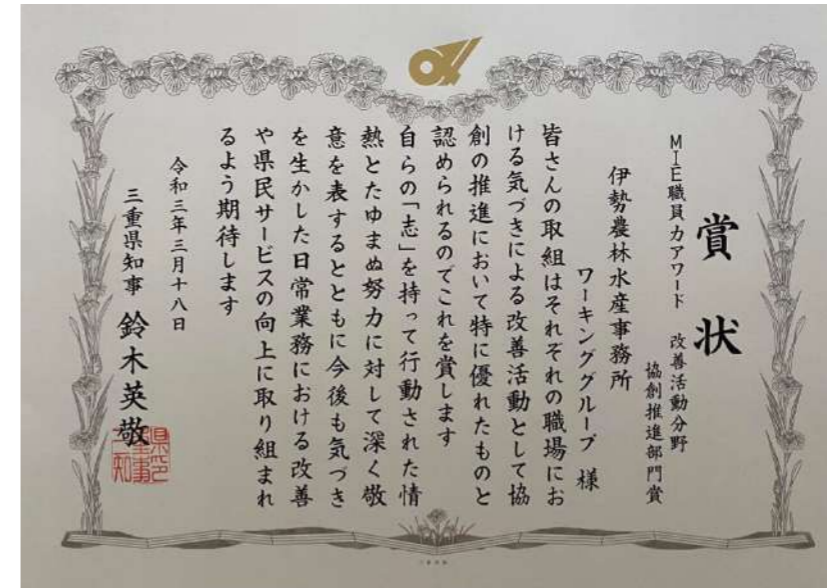 賞状
MIE職員力アワード 改善活動分野
協創推進部門賞
伊勢農林水産事務所
ワーキンググループ 様
皆さんの取組はそれぞれの職場にお
ける気づきによる改善活動として協
創の推進において特に優れたものと
認められるのでこれを賞します
自らの「志」を持って行動された情
熱とたゆまぬ努力に対して深く敬
意を表するとともに今後も気づき
を生かした日常業務における改善
や県民サービスの向上に取り組まれ
るよう期待します
令和三年三月十八日
三重県知事 鈴木英敬